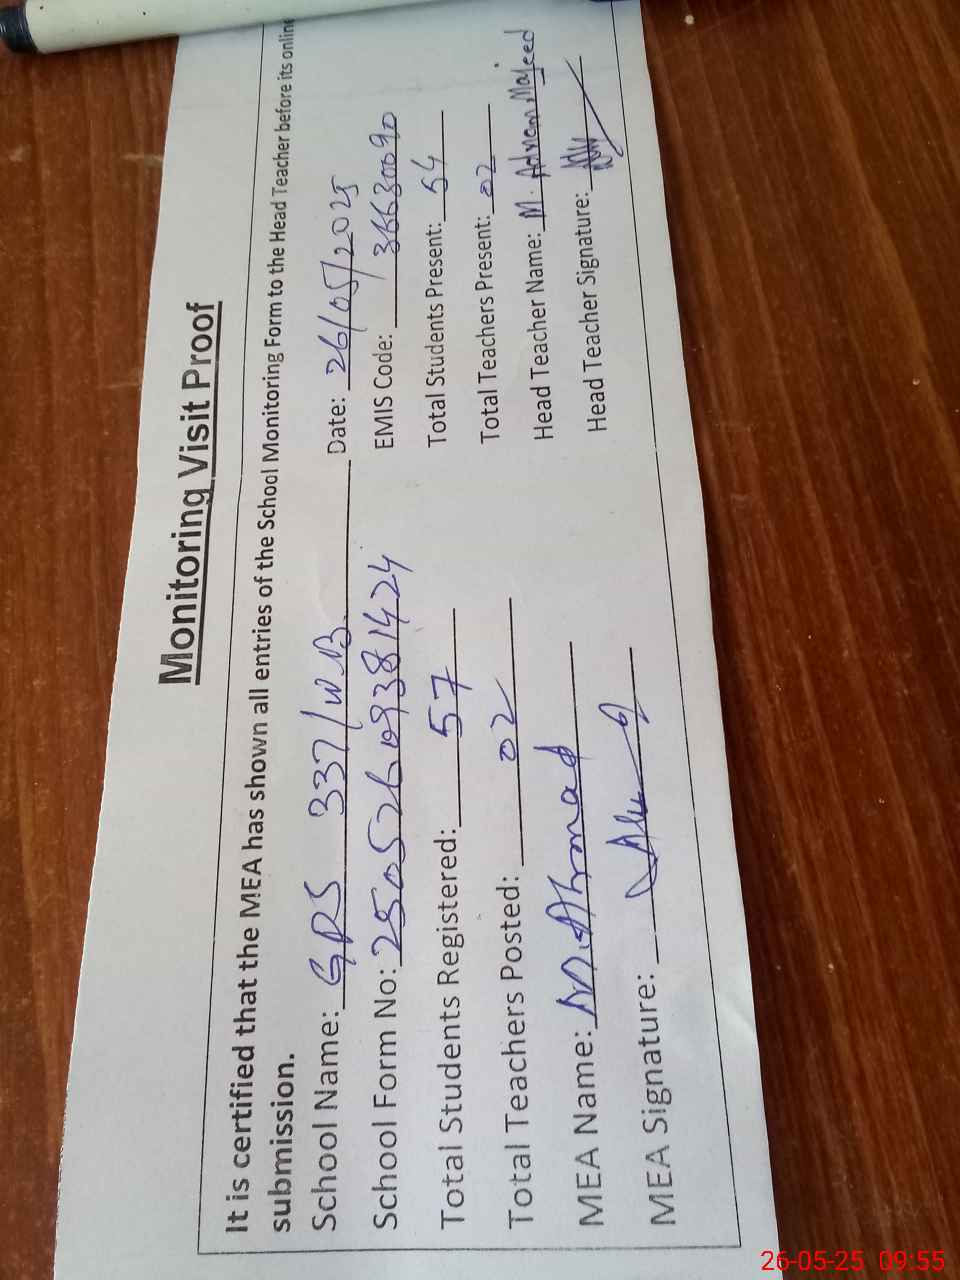 Monitoring Visit Proof
It is certified that the MEA has shown all entries of the School Monitoring Form to the Head Teacher before its online
submission.
School Name: GPS 337/W.B. Date: 26/05/2025
School Form No: 25052609381424 EMIS Code: 36630090
Total Students Registered: 57 Total Students Present: 54
Total Teachers Posted: 02 Total Teachers Present: 02
MEA Name: M. Ahmad Head Teacher Name: M. Adnan Majeed
MEA Signature: Head Teacher Signature:
26-05-25 09:55